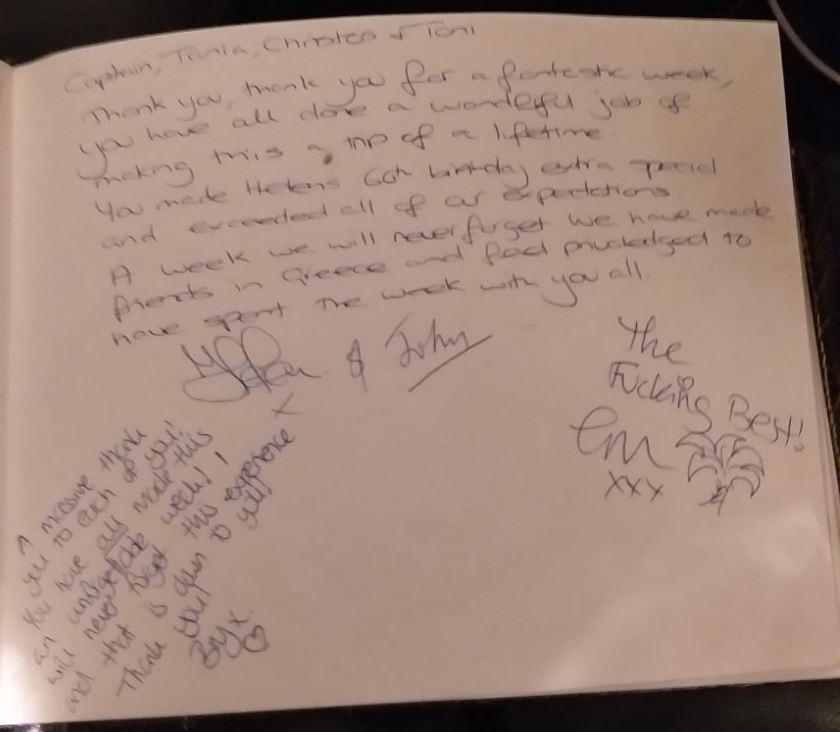 Captain, Tania, Christos & Toni
Thank you, thank you for a fantastic week,
you have all done a wonderful job of
making this a trip of a lifetime
You made Helens 60th birthday extra special
and exceeded all of our expectations
A week we will never forget we have made
friends in Greece and feel priviledged to
have spent the week with you all.
& John
X
The
Fucking Best!
Em
xxx
A massive thank
you to each of you!
You have all made this
an unforgettable week! I
will never forget this experience
and that is down to you!
Thank you!